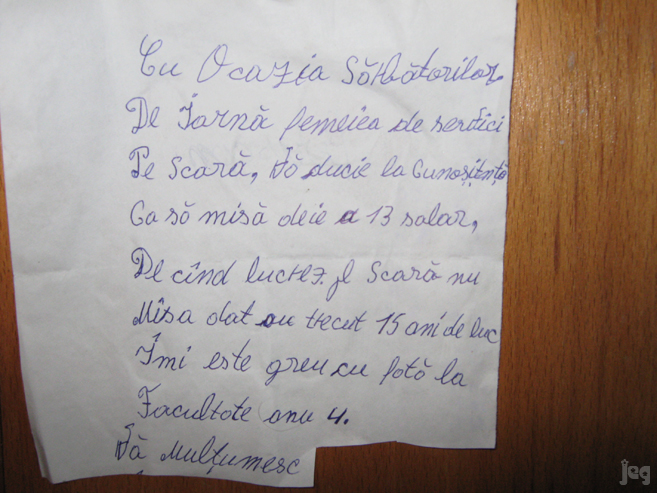 Cu Ocazia Sărbătorilor
De Iarnă femeiea de serdici
Pe Scară, Vă ducie la Cunoșitnță
Ca să misă deie a 13 salar,
De cînd lucrez pe Scară nu
Mitsa dat au trecut 15 ani de luc
Imi este greu cu fată la
Facultate anu 4.
Vă Mulțumesc
jeg